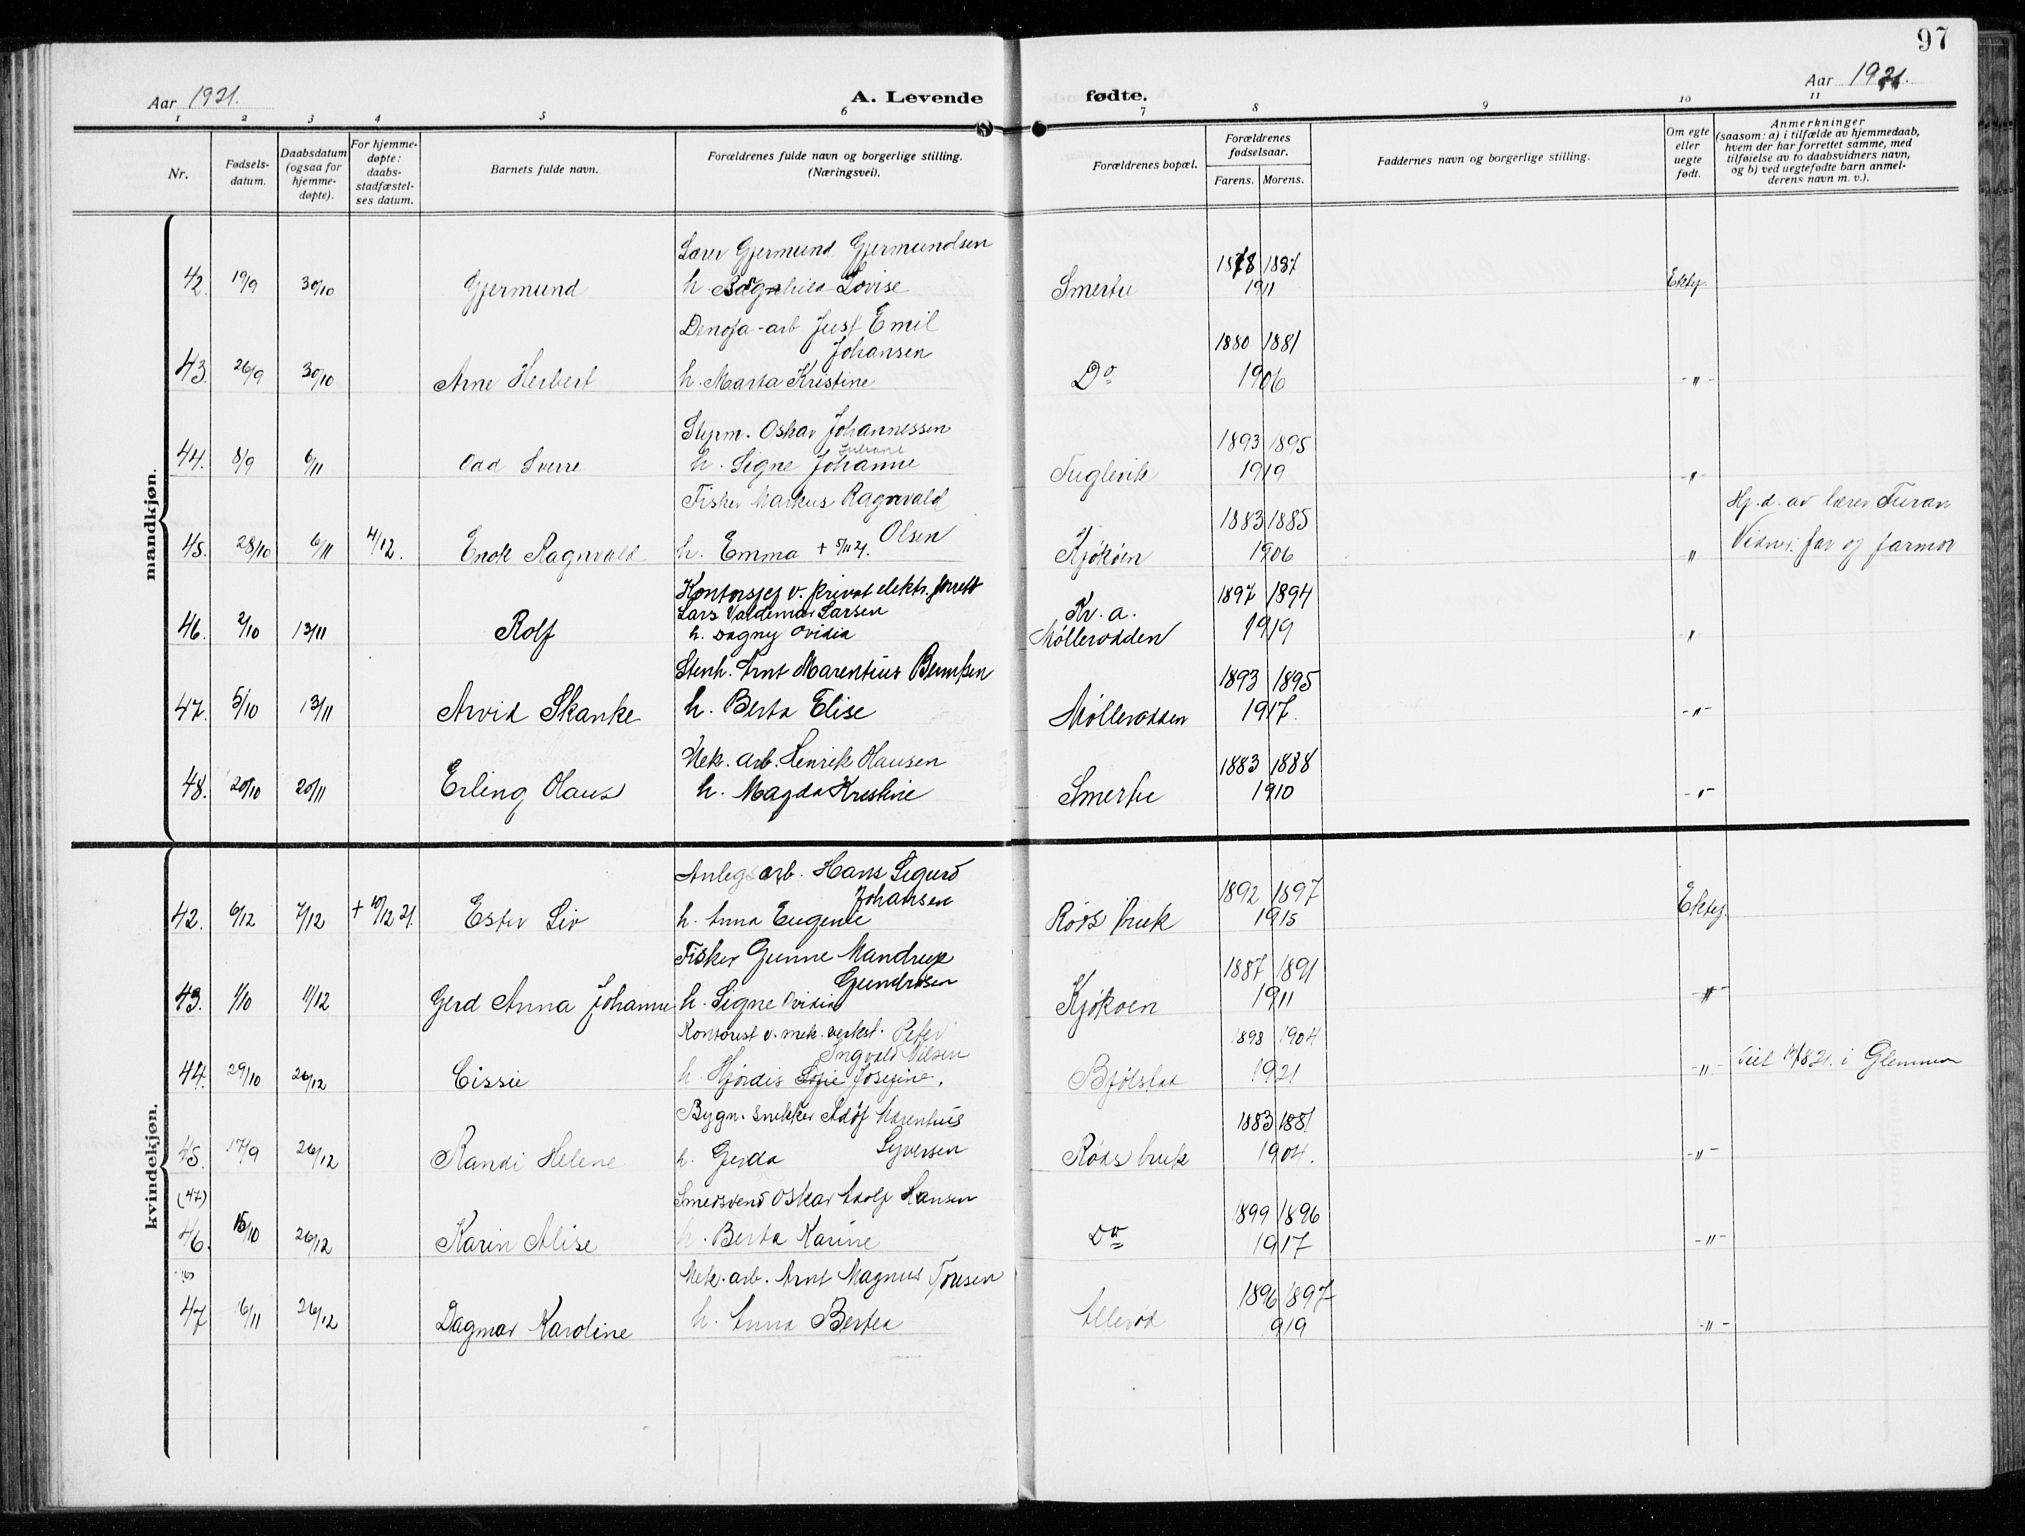 97
Aar 1921.
A. Levende
fødte.
Aar 1921.
1 2 3 4 5 6 7 8 9 10 11
Nr.
Fødsels-
datum.
Daabsdatum
(ogsaa for
hjemme-
døpte).
For hjemme-
døpte:
daabs-
stadfæstel-
ses datum.
Barnets fulde navn.
Forældrenes fulde navn og borgerlige stilling.
(Næringsvei).
Forældrenes bopæl.
Forældrenes
fødselsaar.
Farens. Morens.
Faddernes navn og borgerlige stilling.
Om egte
eller
uegte
født.
Anmerkninger
(saasom: a) i tilfælde av hjemmedaab,
hvem der har forrettet samme, med
tilføielse av to daabsvidners navn,
og b) ved uegtefødte barn anmel-
derens navn m. v.).
mandkjøn.
Lærer Gjermund Gjermundsen
42. 19/9 30/10 Gjermund h. Lovise Smertu 1878 1887
1911 Ektef.
Denofa-arb Just Emil
Johansen
43. 26/9 30/10 Arne Herbert h. Marta Kristine Do 1880 1881
1906 - " -
Styrm. Oskar Johannessen
Juliane
44. 8/9 6/11 Odd Sverre h. Signe Johanne Fuglevik 1893 1895
1919 "
Fisker Markus Ragnvald
Olsen
45. 28/10 6/11 4/12. Enok Ragnvald h. Emma + 5/11 21. Kjøkøen 1883 1885
1906 " Hj.d. av lærer Furan
Vidner: far og farmor
Kontorsjef v. privat elektr. forrett
Lars Valdemar Larsen
46. 2/10 13/11 Rolf h. Dagny Ovidia Kr. a.
Møllerodden 1897 1894
1919 "
Stenh. Arnt Marentius Berntsen
47. 5/10 13/11 Arvid Skanke h. Berta Elise Møllerodden 1893 1895
1917. - " -
Mek. arb. Henrik Hansen
48. 20/10 20/11 Erling Olaus h. Magda Kristine Smertu 1883 1888
1910 - " -
kvindekjøn.
Anlegsarb. Hans Sigurd
Johansen
42. 6/12 7/12 + 10/12 21. Ester Liv h. Anna Eugenie Røds bruk 1892 1897
1915 Ektef.
Fisker Gunne Mandrup
Gundersen
43. 1/10 11/12 Gerd Anna Johanne h. Signe Ovidia Kjøkøen 1887 1891
1911 - " -
Kontorist v. mek. verkst. Peter
Ingvald Nilsen
44. 29/10 26/12 Cissie h. Hjørdis Sofie Josefine. Bjølstad 1898 1904
1921 - " - Viet 13/8 21. i Glemmen
Bygn. snekker Adolf Marentius
Syversen
45. 17/9 26/12 Randi Helene h. Gerda Røds bruk 1883 1881
1904. - " -
(47)
Smedsvend Oskar Adolf Hansen
46. 15/10 26/12 Karin Alise h. Berta Karine Do 1899 1896
1917 - " -
Mek. arb. Arnt Magnus Tonsen
47 6/11 26/12 Dagmar Karoline h. Anna Bertea Allerød 1896 1897
1919 - " -